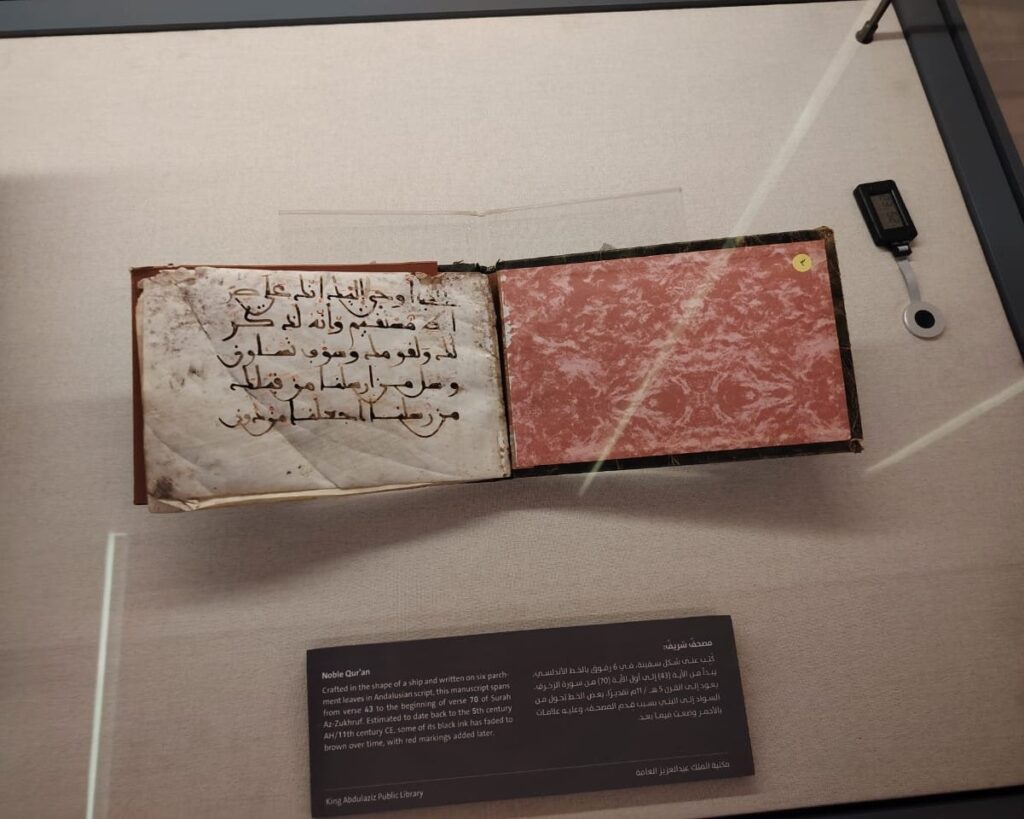 اوحي اليك انك على صر
اط مستقيم وانه لذكر
لك ولقومك وسوف تسلون
وسل من ارسلنا من قبلك
من رسلنا اجعلنا من دون
٣
Noble Qur'an
Crafted in the shape of a ship and written on six parch-
ment leaves in Andalusian script, this manuscript spans
from verse 43 to the beginning of verse 70 of Surah
Az-Zukhruf. Estimated to date back to the 5th century
AH/11th century CE, some of its black ink has faded to
brown over time, with red markings added later.
King Abdulaziz Public Library
مصحفٌ شريفٌ:
كُتب على شكل سفينة، في 6 رقوق بالخط الأندلسي،
يبدأ من الآية (43) إلى أول الآية (70) من سورة الزخرف،
يعود إلى القرن 5 هـ / 11م تقديرًا، بعض الخط تحول من
السواد إلى البني بسبب قدم المصحف، وعليه علامات
بالأحمر وضعت فيما بعد.
مكتبة الملك عبدالعزيز العامة